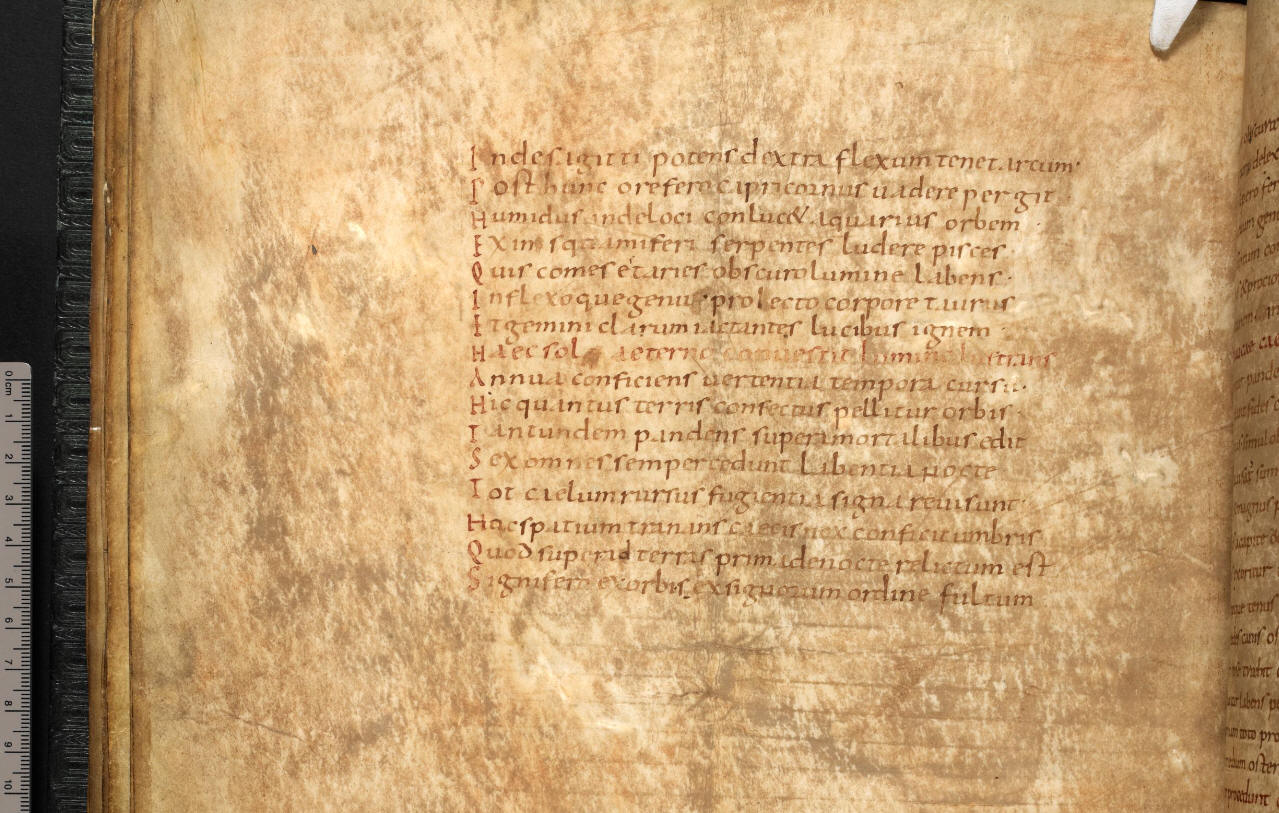 Inde sagittipotens dextra flexum tenet arcum
Post hunc ore fero capricornus vadere pergit
Humidus inde loci conlucet aquarius orbem
Exin squamiferi serpentes ludere pisces
Quis comes et aries obscuro lumine labens
Inflexoque genu proiecto corpore taurus
Et gemini clarum iactantes lucibus ignem
Haec sol aeterno convestit lumine lustrans
Annua conficiens vertentia tempora cursu
Hic quantus terris consectus pellitur orbis
Tantundem pandens supera mortalibus edit
Sex omnes semper cedunt labentia nocte
Tot caelum rursus fugientia signa revisunt
Hoc spatium tranans caecis nox conficit umbris
Quod supera terras prima de nocte relictum est
Signifero ex orbis ex signorum ordine fultum